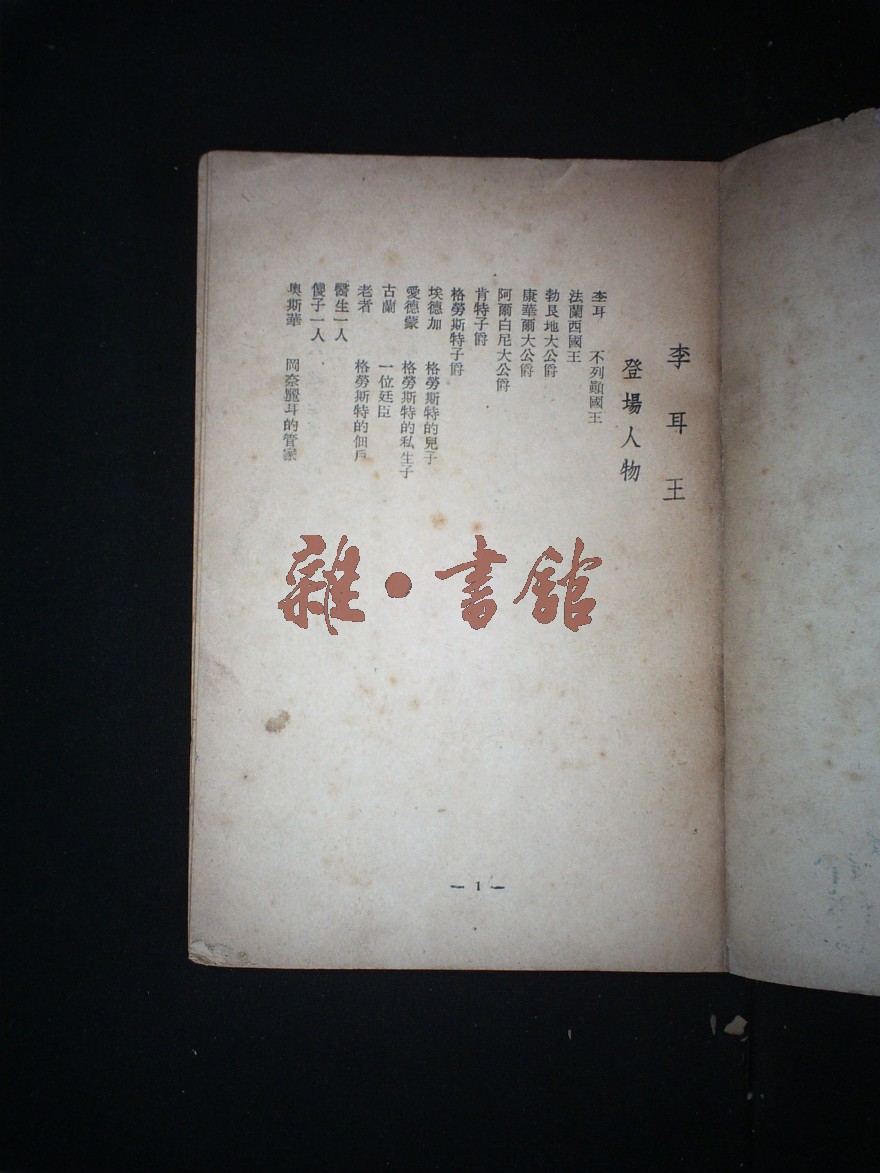 李耳王
登場人物
李耳 不列顛國王
法蘭西國王
勃艮地大公爵
康華爾大公爵
阿爾白尼大公爵
肯特子爵
格勞斯特子爵
埃德加 格勞斯特的兒子
愛德蒙 格勞斯特的私生子
古蘭 一位廷臣
老者 格勞斯特的佃戶
醫生一人
傻子一人
奧斯華 岡奈麗耳的管家
— 1 —
雜•書館